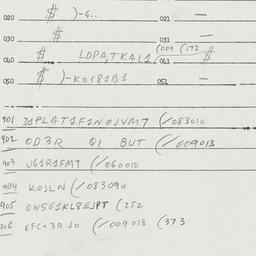 020 $ )-G.. 021 —
030 $ 031 —
040 $ LDPA,TKAL1 (009 (172 041 $
050 $ )-KOC81B1 051 —
901 D1PLAT1F1NOJVMT (/083010
902 OD3R QI BUT (/009013
903 JG1R1FMT (/060010
904 KOJLN (/083090
905 OWSG1KL8EJPT (252
906 EFC+3R JO (/009013 (373